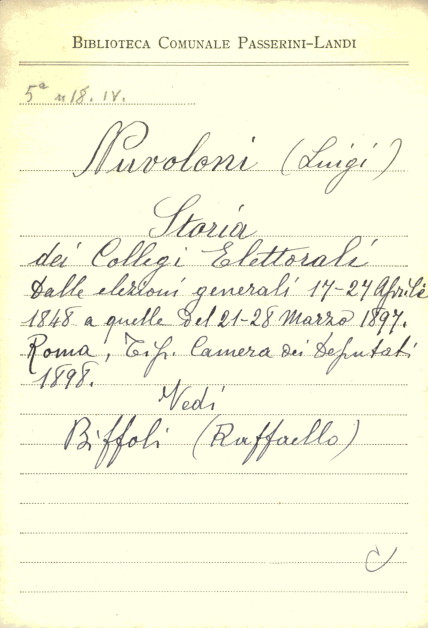 BIBLIOTECA COMUNALE PASSERINI-LANDI
5ª n 18. IV.
Nuvoloni (Luigi)
Storia
dei Collegi Elettorali
Dalle elezioni generali 17-27 Aprile
1848 a quelle del 21-28 Marzo 1897.
Roma, Tip. Camera dei Deputati
1898.
Vedi
Biffoli (Raffaello)